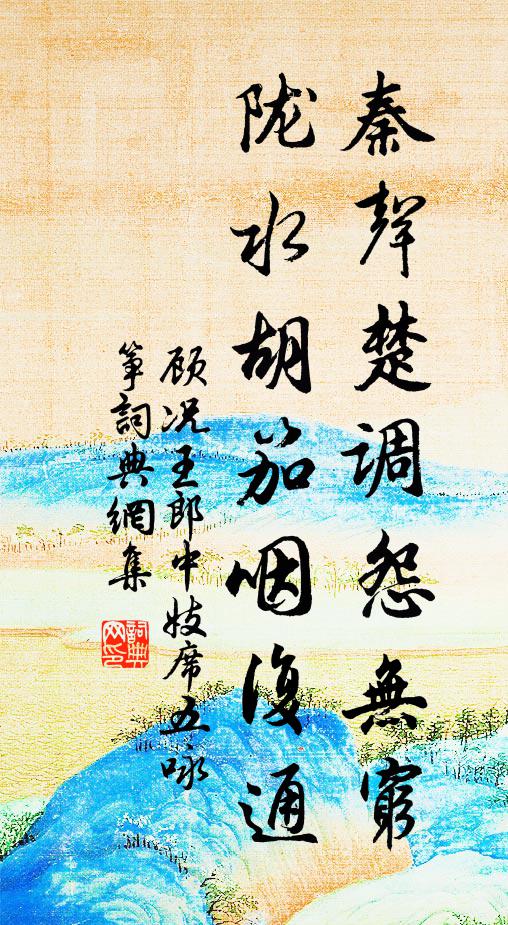 秦聲楚调怨無窮
陇水胡笳咽復通
顾况王郎中妓席五咏
筝詞典網集
詞典网印